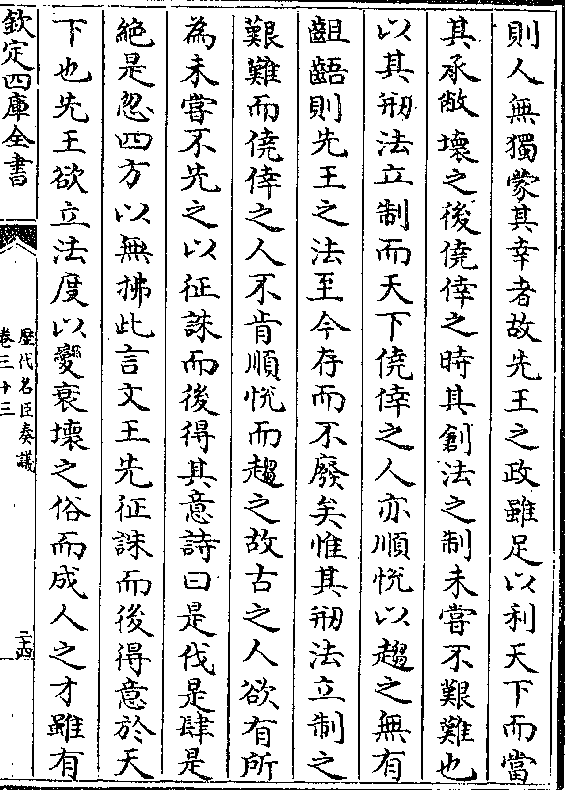 則人無獨蒙其幸者故先王之政雖足以利天下而當
其承敝壞之後僥倖之時其創法之制未嘗不艱難也
以其刱法立制而天下僥倖之人亦順恱以趨之無有
齟齬則先王之法至今存而不廢矣惟其刱法立制之
艱難而僥倖之人不肯順恱而趨之故古之人欲有所
為未嘗不先之以征誅而後得其意詩曰是伐是肆是
絶是忽四方以無拂此言文王先征誅而後得意於天
下也先王欲立法度以變衰壞之俗而成人之才雖有
欽定四庫全書
歴代名臣奏議
卷三十三
二十四